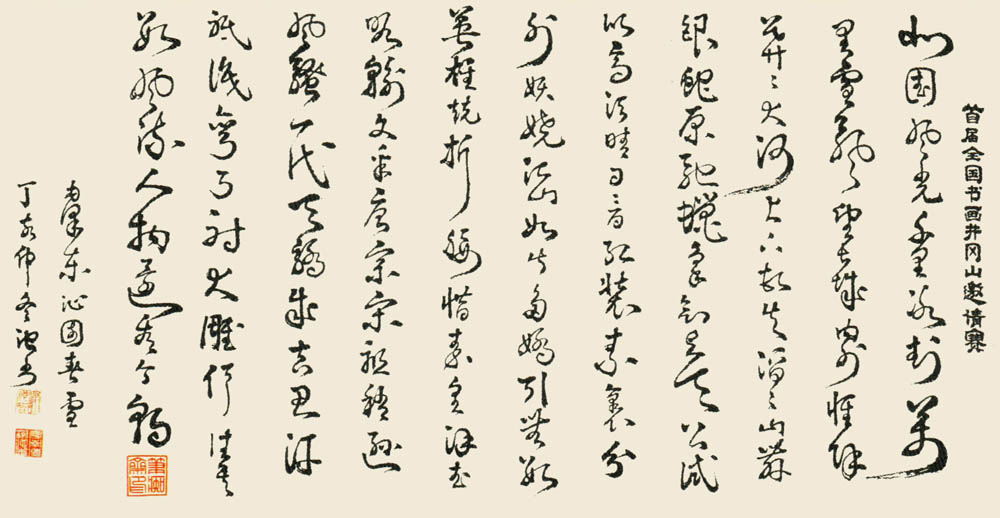 首届全国书画井冈山邀请赛
北国风光千里冰封万
里雪飘望长城内外惟余
莽々大河上下顿失滔々山舞
银蛇原驰蜡象欲与天公试
比高须晴日看红装素裹分
外妖娆江山如此多娇引无数
英雄竞折腰惜秦皇汉武
略输文采唐宗宋祖稍逊
风骚一代天骄成吉思汗
祇识弯弓射大雕俱往矣
数风流人物还看今朝
泽东沁园春雪
丁亥仲冬书